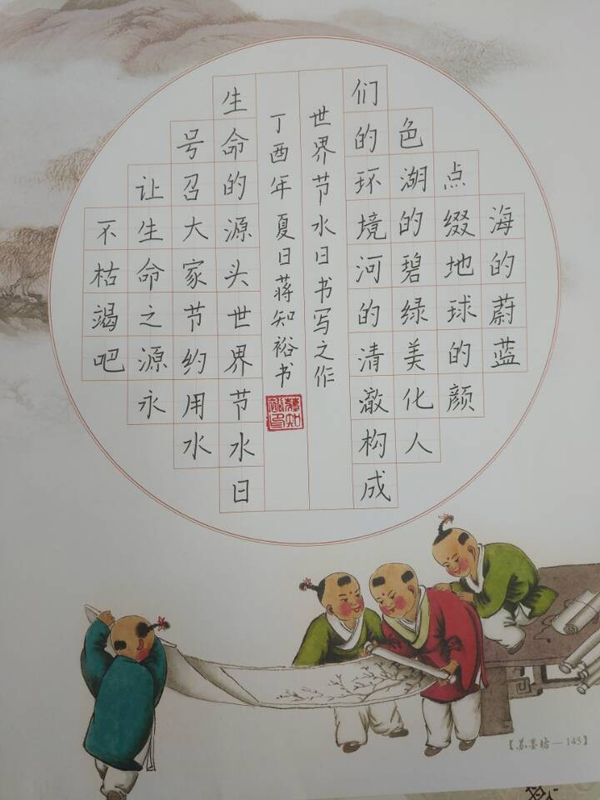 海的蔚蓝
点缀地球的颜
色湖的碧绿美化人
们的环境河的清澈构成
世界节水日书写之作
丁酉年夏日蒋知裕书
生命的源头世界节水日
号召大家节约用水
让生命之源永
不枯竭吧
【苏墨坊—145】